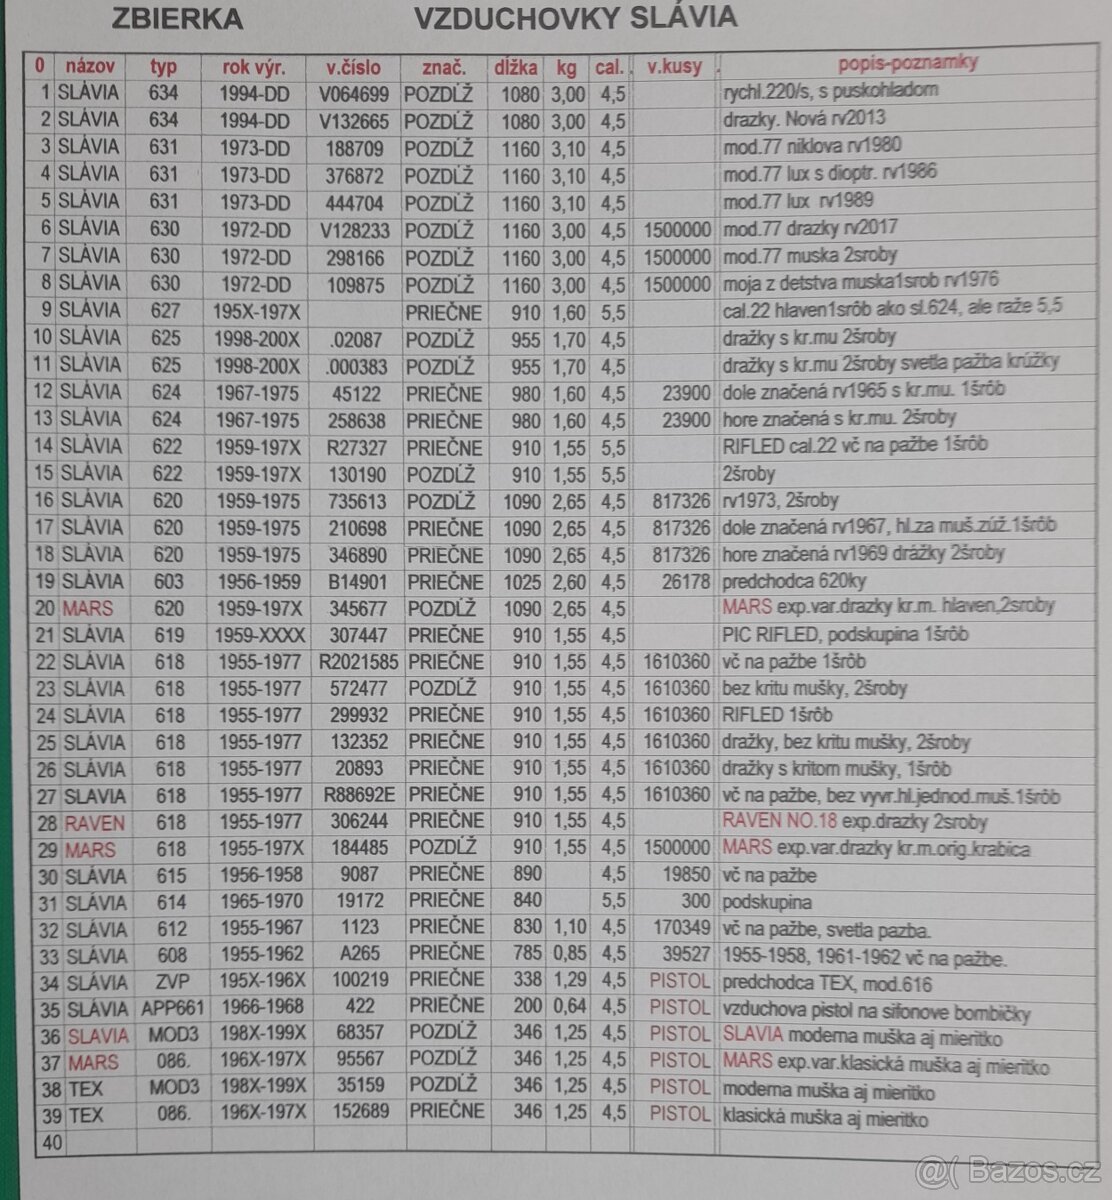 ZBIERKA VZDUCHOVKY SLÁVIA
0 názov typ rok výr. v.číslo znač. dĺžka kg cal. v.kusy popis-poznamky
1 SLÁVIA 634 1994-DD V064699 POZDĹŽ 1080 3,00 4,5 rychl.220/s, s puskohladom
2 SLÁVIA 634 1994-DD V132665 POZDĹŽ 1080 3,00 4,5 drazky. Nová rv2013
3 SLÁVIA 631 1973-DD 188709 POZDĹŽ 1160 3,10 4,5 mod.77 niklova rv1980
4 SLÁVIA 631 1973-DD 376872 POZDĹŽ 1160 3,10 4,5 mod.77 lux s dioptr. rv1986
5 SLÁVIA 631 1973-DD 444704 POZDĹŽ 1160 3,10 4,5 mod.77 lux rv1989
6 SLÁVIA 630 1972-DD V128233 POZDĹŽ 1160 3,00 4,5 1500000 mod.77 drazky rv2017
7 SLÁVIA 630 1972-DD 298166 POZDĹŽ 1160 3,00 4,5 1500000 mod.77 muska 2sroby
8 SLÁVIA 630 1972-DD 109875 POZDĹŽ 1160 3,00 4,5 1500000 moja z detstva muska1srob rv1976
9 SLÁVIA 627 195X-197X PRIEČNE 910 1,60 5,5 cal.22 hlaven1srôb ako sl.624, ale raže 5,5
10 SLÁVIA 625 1998-200X .02087 POZDĹŽ 955 1,70 4,5 dražky s kr.mu 2šroby
11 SLÁVIA 625 1998-200X .000383 POZDĹŽ 955 1,70 4,5 dražky s kr.mu 2šroby svetla pažba krúžky
12 SLÁVIA 624 1967-1975 45122 PRIEČNE 980 1,60 4,5 23900 dole značená rv1965 s kr.mu. 1šrôb
13 SLÁVIA 624 1967-1975 258638 PRIEČNE 980 1,60 4,5 23900 hore značená s kr.mu. 2šroby
14 SLÁVIA 622 1959-197X R27327 PRIEČNE 910 1,55 5,5 RIFLED cal.22 vč na pažbe 1šrôb
15 SLÁVIA 622 1959-197X 130190 POZDĹŽ 910 1,55 5,5 2šroby
16 SLÁVIA 620 1959-1975 735613 POZDĹŽ 1090 2,65 4,5 817326 rv1973, 2šroby
17 SLÁVIA 620 1959-1975 210698 PRIEČNE 1090 2,65 4,5 817326 dole značená rv1967, hl.za muš.zúž.1šrôb
18 SLÁVIA 620 1959-1975 346890 PRIEČNE 1090 2,65 4,5 817326 hore značená rv1969 drážky 2šroby
19 SLÁVIA 603 1956-1959 B14901 PRIEČNE 1025 2,60 4,5 26178 predchodca 620ky
20 MARS 620 1959-197X 345677 POZDĹŽ 1090 2,65 4,5 MARS exp.var.drazky kr.m. hlaven,2sroby
21 SLÁVIA 619 1959-XXXX 307447 PRIEČNE 910 1,55 4,5 PIC RIFLED, podskupina 1šrôb
22 SLÁVIA 618 1955-1977 R2021585 PRIEČNE 910 1,55 4,5 1610360 vč na pažbe 1šrôb
23 SLÁVIA 618 1955-1977 572477 POZDĹŽ 910 1,55 4,5 1610360 bez kritu mušky, 2šroby
24 SLÁVIA 618 1955-1977 299932 PRIEČNE 910 1,55 4,5 1610360 RIFLED 1šrôb
25 SLÁVIA 618 1955-1977 132352 PRIEČNE 910 1,55 4,5 1610360 dražky, bez kritu mušky, 2šroby
26 SLÁVIA 618 1955-1977 20893 PRIEČNE 910 1,55 4,5 1610360 dražky s kritom mušky, 1šrôb
27 SLAVIA 618 1955-1977 R88692E PRIEČNE 910 1,55 4,5 1610360 vč na pažbe, bez vyvr.hl.jednod.muš.1šrôb
28 RAVEN 618 1955-1977 306244 PRIEČNE 910 1,55 4,5 RAVEN NO.18 exp.drazky 2sroby
29 MARS 618 1955-197X 184485 POZDĹŽ 910 1,55 4,5 1500000 MARS exp.var.drazky kr.m.orig.krabica
30 SLÁVIA 615 1956-1958 9087 PRIEČNE 890 4,5 19850 vč na pažbe
31 SLÁVIA 614 1965-1970 19172 PRIEČNE 840 5,5 300 podskupina
32 SLÁVIA 612 1955-1967 1123 PRIEČNE 830 1,10 4,5 170349 vč na pažbe, svetla pazba.
33 SLÁVIA 608 1955-1962 A265 PRIEČNE 785 0,85 4,5 39527 1955-1958, 1961-1962 vč na pažbe.
34 SLÁVIA ZVP 195X-196X 100219 PRIEČNE 338 1,29 4,5 PISTOL predchodca TEX, mod.616
35 SLÁVIA APP661 1966-1968 422 PRIEČNE 200 0,64 4,5 PISTOL vzduchova pistol na sifonove bombičky
36 SLAVIA MOD3 198X-199X 68357 POZDĹŽ 346 1,25 4,5 PISTOL SLAVIA moderna muška aj mieritko
37 MARS 086. 196X-197X 95567 POZDĹŽ 346 1,25 4,5 PISTOL MARS exp.var.klasická muška aj mieritko
38 TEX MOD3 198X-199X 35159 POZDĹŽ 346 1,25 4,5 PISTOL moderna muška aj mieritko
39 TEX 086. 196X-197X 152689 PRIEČNE 346 1,25 4,5 PISTOL klasická muška aj mieritko
40
@( Bazos.cz